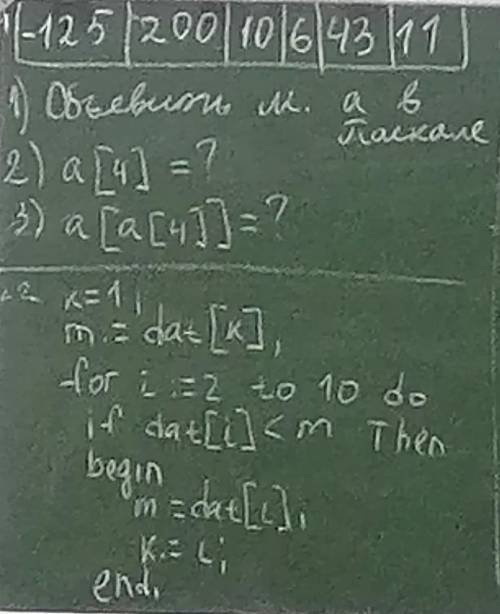 -125 200 10 6 43 11
1) Объевить м. a в
Паскале
2) a[4] = ?
3) a[a[4]] = ?
k=1;
m:=dat[k];
for i:=2 to 10 do
if dat[i]<m Then
begin
m=dat[i];
k:=i;
end;